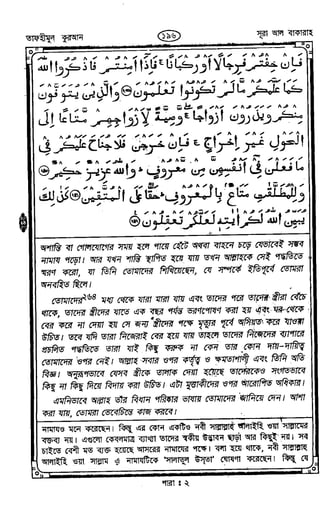 তাফহীমুল কুরআন
১৯৬
সূরা আল বাকারাহ
فَإِنْ خِفْتُمْ فَرِجَالًا أَوْ رُكْبَانًا ۚ فَإِذَا أَمِنتُمْ فَاذْكُرُوا اللَّهَ
كَمَا عَلَّمَكُم مَّا لَمْ تَكُونُوا تَعْلَمُونَ ﴿٢٣٩﴾ وَالَّذِينَ يُتَوَفَّوْنَ
مِنكُمْ وَيَذَرُونَ أَزْوَاجًا ۖ وَصِيَّةً لِّأَزْوَاجِهِم مَّتَاعًا إِلَى
الْحَوْلِ غَيْرَ إِخْرَاجٍ ۚ فَإِنْ خَرَجْنَ فَلَا جُنَاحَ عَلَيْكُمْ فِي
مَا فَعَلْنَ فِي أَنفُسِهِنَّ مِن مَّعْرُوفٍ ۗ وَاللَّهُ عَزِيزٌ حَكِيمٌ ﴿٢٤٠﴾
وَلِلْمُطَلَّقَاتِ مَتَاعٌ بِالْمَعْرُوفِ ۖ حَقًّا عَلَى الْمُتَّقِينَ ﴿٢٤١﴾ كَذَٰلِكَ
يُبَيِّنُ اللَّهُ لَكُمْ آيَاتِهِ لَعَلَّكُمْ تَعْقِلُونَ ﴿٢٤٢﴾
অশান্তি বা গোলযোগের সময় হলে পায়ে হেঁটে অথবা বাহনে চড়ে যেভাবেই সম্ভব
নামায পড়ো। আর যখন শান্তি স্থাপিত হয়ে যায় তখন আল্লাহকে সেই পদ্ধতিতে
স্মরণ করো, যা তিনি তোমাদের শিখিয়েছেন, যে সম্পর্কে ইতিপূর্বে তোমরা
অনবহিত ছিলে।
তোমাদের২৬৪ মধ্য থেকে যারা মারা যায় এবং তাদের পরে তাদের স্ত্রীরা বেঁচে
থাকে, তাদের স্ত্রীদের যাতে এক বছর পর্যন্ত ভরণপোষণ করা হয় এবং ঘর-থেকে
বের করে না দেয়া হয় সে জন্য স্ত্রীদের পক্ষে মৃত্যুর পূর্বে অসিয়ত করে যাওয়া
উচিত। তবে যদি তারা নিজেরাই বের হয়ে যায় তাহলে তাদের নিজেদের ব্যাপারে
প্রচলিত পদ্ধতিতে তারা যাই কিছু করুক না কেন তার কোন দায়-দায়িত্ব
তোমাদের ওপর নেই। আল্লাহ সবার ওপর কর্তৃত্ব ও ক্ষমতাশালী এবং তিনি অতি
বিজ্ঞ। অনুরূপভাবে যেসব স্ত্রীকে তালাক দেয়া হয়েছে তাদেরকেও সংগতভাবে
কিছু না কিছু দিয়ে বিদায় করা উচিত। এটা মুত্তাকীদের ওপর আরোপিত অধিকার।
এমনিভাবে আল্লাহ তাঁর বিধান পরিষ্কার ভাষায় তোমাদের জানিয়ে দেন। আশা
করা যায়, তোমরা ভেবেচিন্তে কাজ করবে।
নামাযও মনে করেছেন। কিন্তু এর কোন একটিও নবী সাল্লাল্লাহু আলাইহি ওয়া সাল্লামের
বক্তব্য নয়। এগুলো কেবলমাত্র ব্যাখ্যা তাদের স্বকীয় উদ্ভাবন ছাড়া আর কিছুই নয়। সব
চাইতে বেশী মত ব্যক্ত হয়েছে আসরের নামাযের পক্ষে। বলা হয়ে থাকে, নবী সাল্লাল্লাহু
আলাইহি ওয়া সাল্লাম এ নামাযটিকে 'সালাতুল উস্তা' ঘোষণা করেছেন। কিন্তু যে
পারা : ২